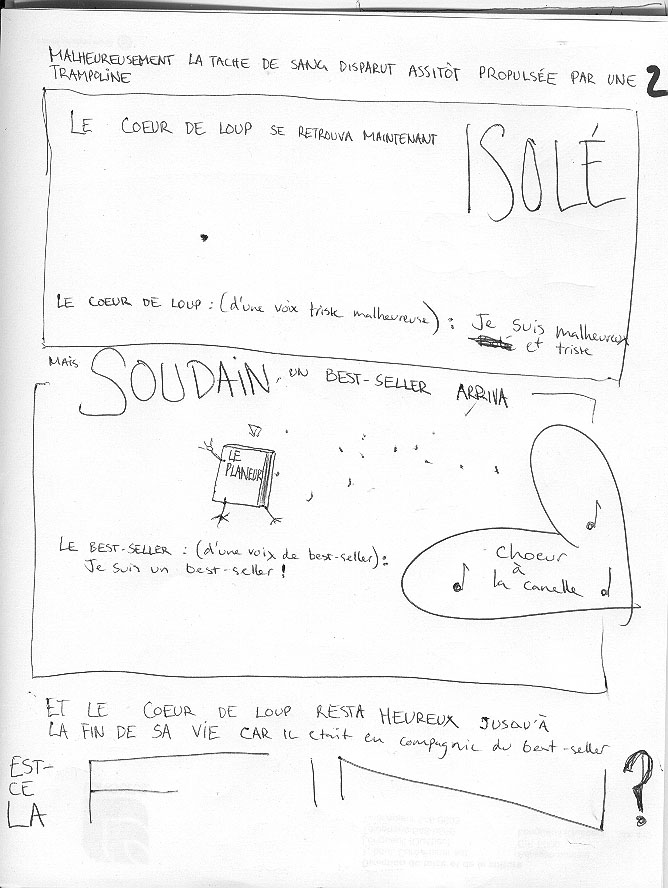 MALHEUREUSEMENT LA TACHE DE SANG DISPARUT ASSITÔT PROPULSÉE PAR UNE
TRAMPOLINE
2
LE COEUR DE LOUP SE RETROUVA MAINTENANT
ISOLÉ
LE COEUR DE LOUP : (d'une voix triste malheureuse) : Je suis malheureux
et triste
MAIS SOUDAIN, UN BEST-SELLER ARRIVA
LE
PLANEUR
LE BEST-SELLER : (d'une voix de best-seller) :
Je suis un best-seller !
Choeur
à
la canelle
ET LE COEUR DE LOUP RESTA HEUREUX JUSQU'À
LA FIN DE SA VIE CAR IL était en compagnie du best-seller
EST-
CE
LA
FIN ?